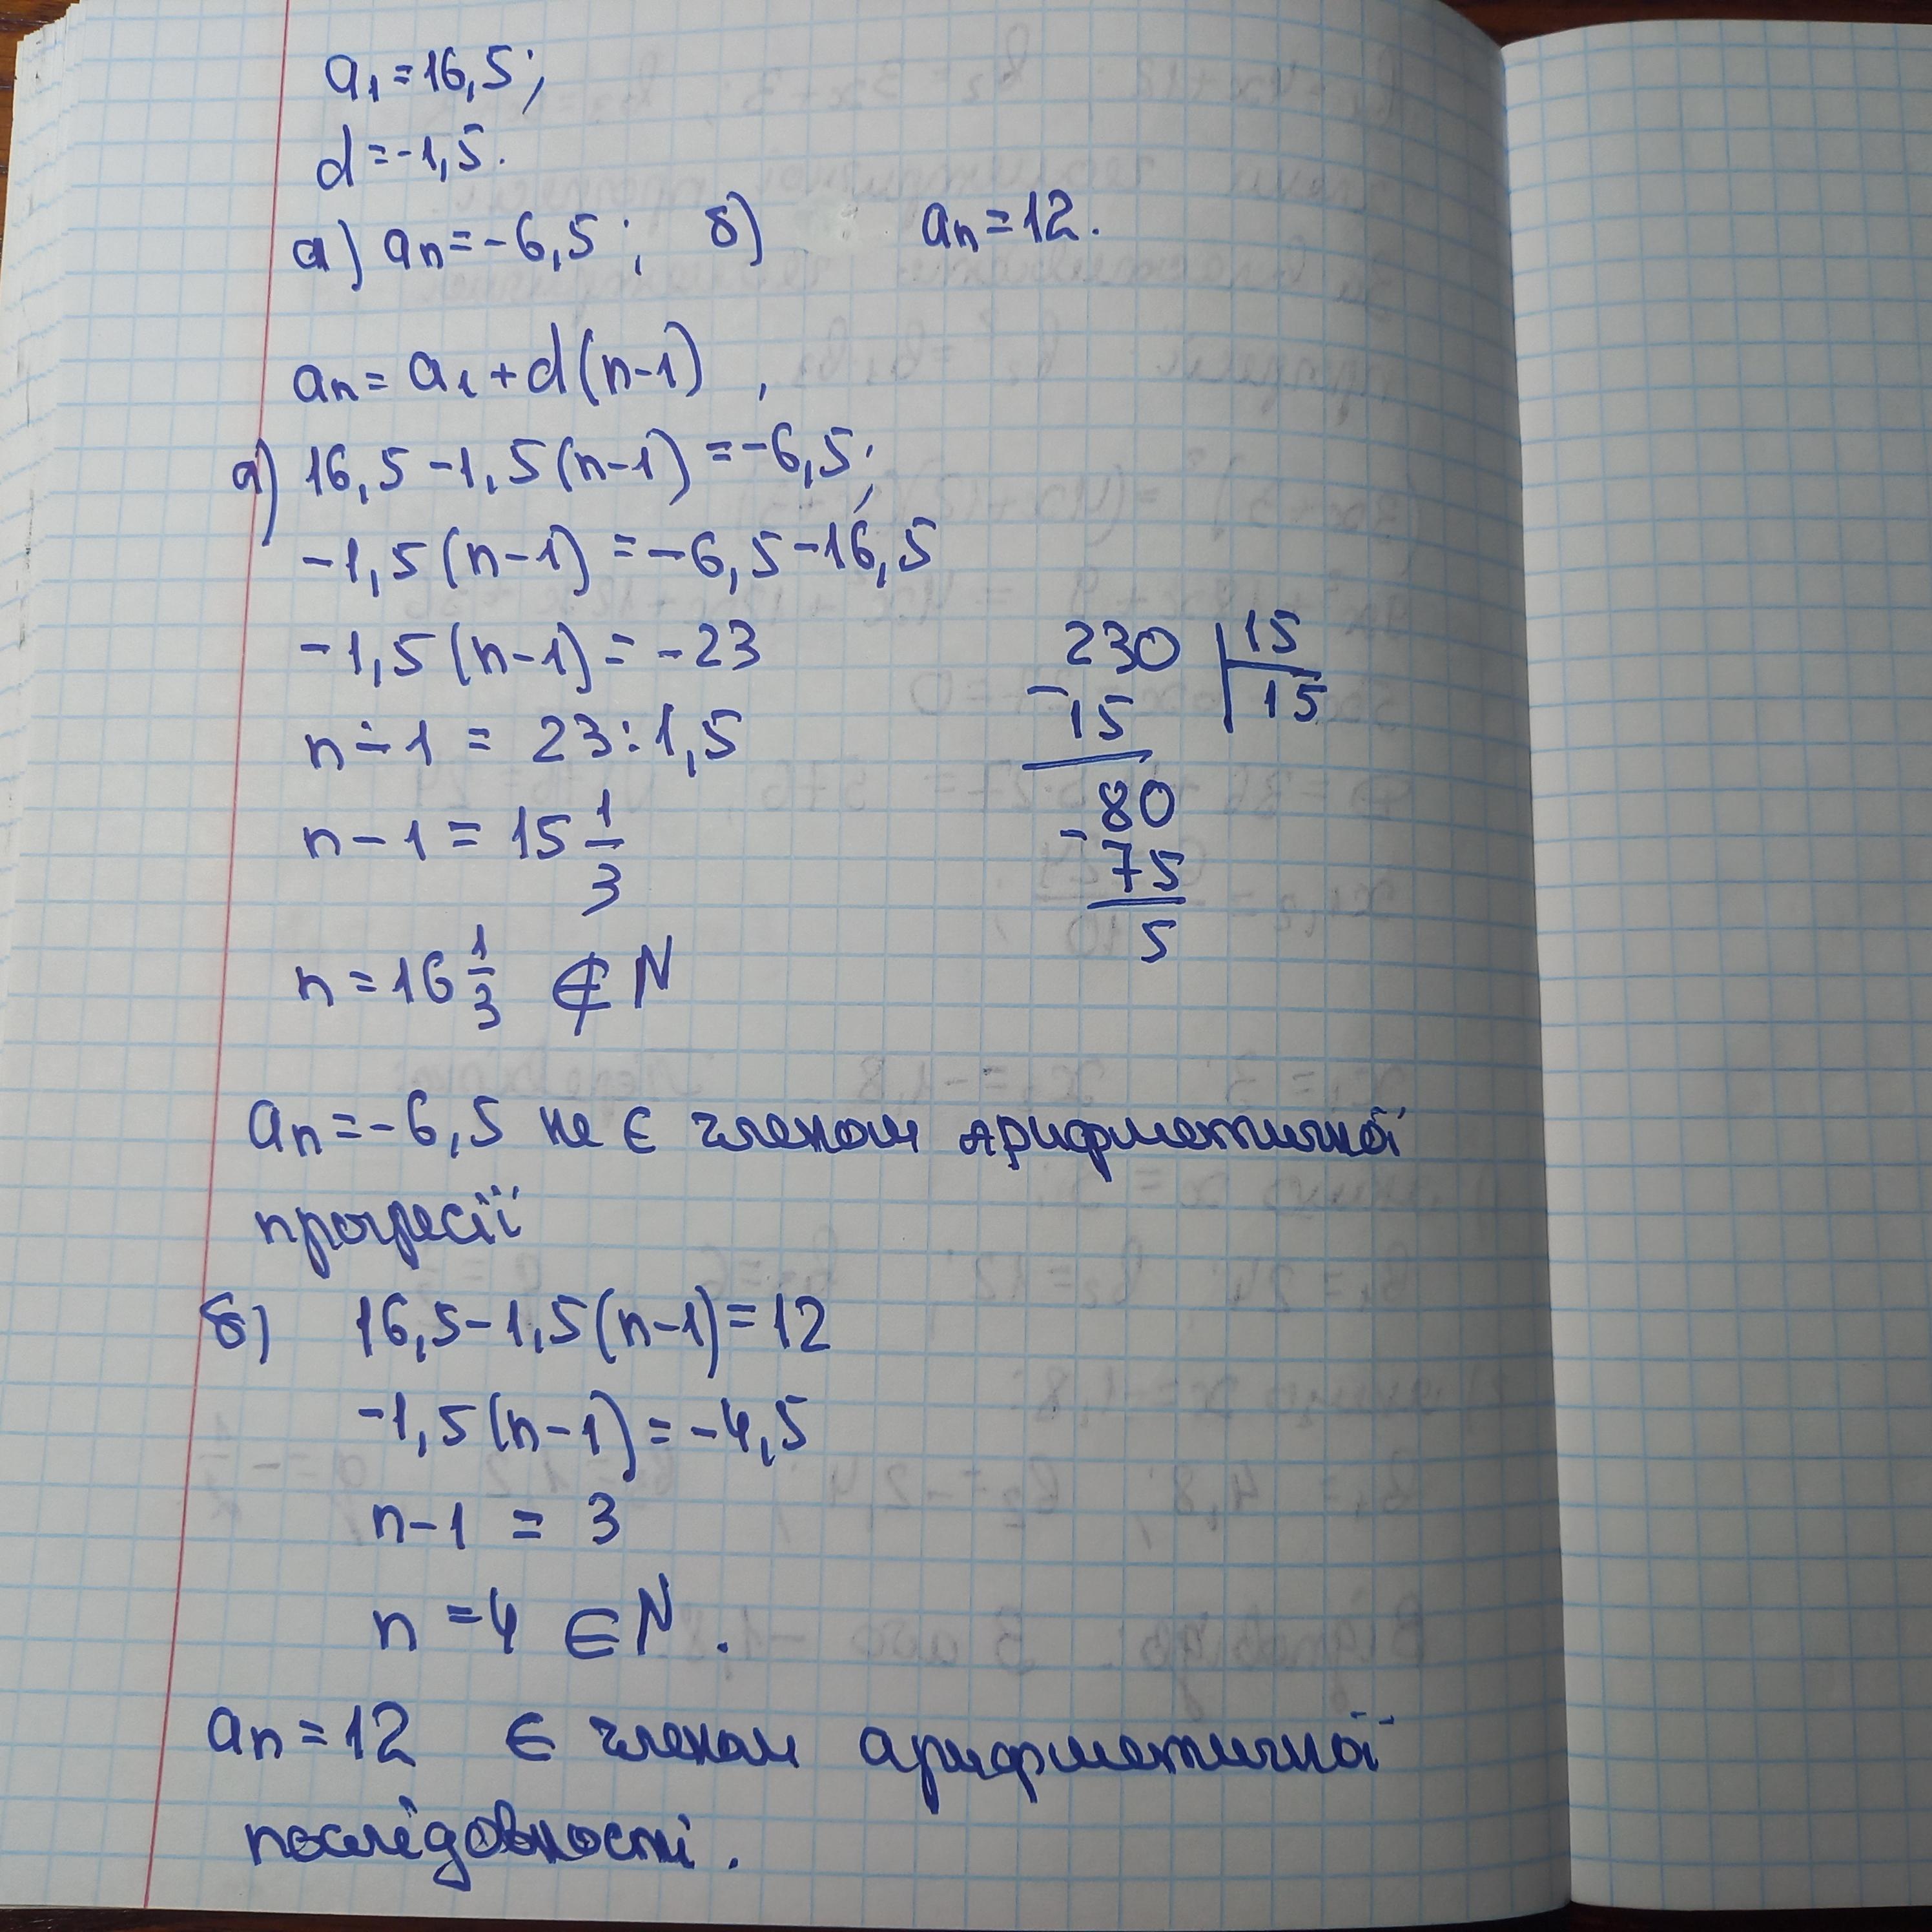 a₁=16,5;
d=-1,5.
а) aₙ=-6,5; б) aₙ=12.
aₙ=a₁+d(n-1),
а) 16,5-1,5(n-1)=-6,5;
-1,5(n-1)=-6,5-16,5
-1,5(n-1)=-23
n-1=23:1,5
n-1=15 1/3
n=16 1/3 ∉ N
230 | 15
-15 | 15
80
-75
5
aₙ=-6,5 не є членом арифметичної
прогресії
б) 16,5-1,5(n-1)=12
-1,5(n-1)=-4,5
n-1=3
n=4 ∈ N.
aₙ=12 є членом арифметичної
послідовності.